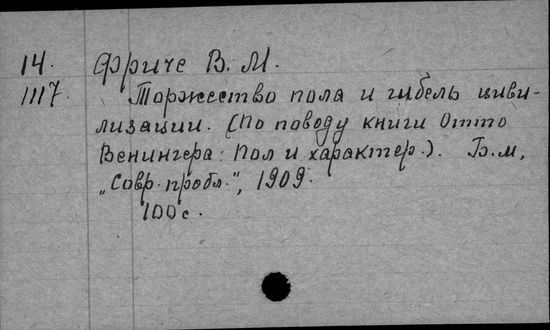 14. Фриче В. М.
1117. Торжество пола и гибель циви-
лизации. (По поводу книги Отто
Венингера: Пол и характер.). Б.м,
„Совр. пробл.", 1909.
100с.